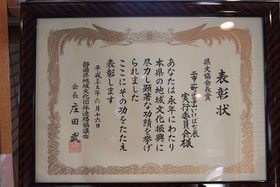 表彰状
県文協会長賞
実行委員会様
あなたは永年にわたり
本県の地域文化振興に
尽力し顕著な功績を挙げ
られました
ここにその功をたたえ
表彰します
平成二十五年六月十六日
静岡県地域文化団体連絡協議会
会長 庄田武